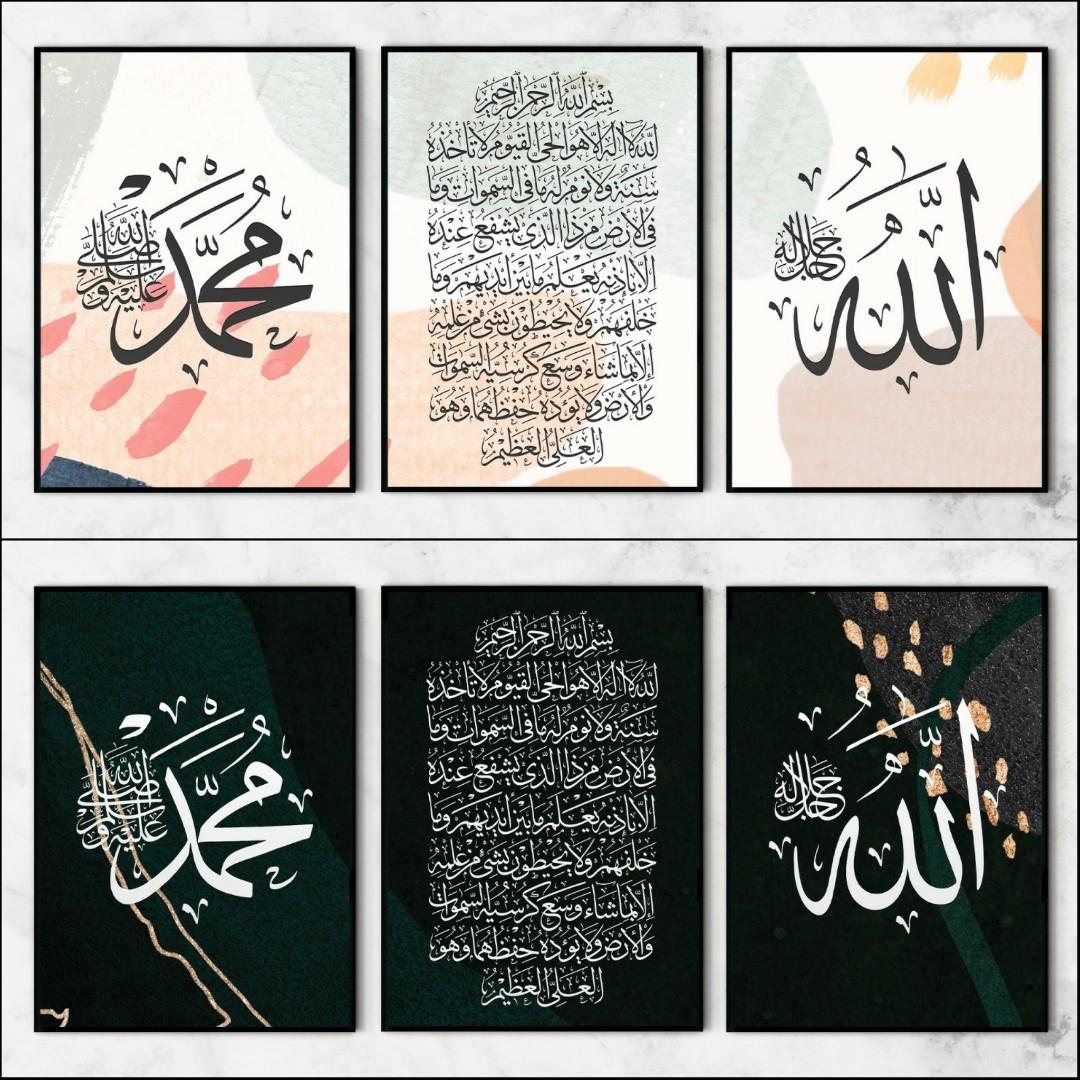 الله جل جلاله
بسم الله الرحمن الرحيم
الله لا اله الا هو الحي القيوم لا تأخذه
سنة ولا نوم له ما في السموات وما
في الارض من ذا الذي يشفع عنده
الا باذنه يعلم ما بين ايديهم وما
خلفهم ولا يحيطون بشيء من علمه
الا بما شاء وسع كرسيه السموات
والارض ولا يؤده حفظهما وهو
العلي العظيم
محمد صلى الله عليه وسلم
الله جل جلاله
بسم الله الرحمن الرحيم
الله لا اله الا هو الحي القيوم لا تأخذه
سنة ولا نوم له ما في السموات وما
في الارض من ذا الذي يشفع عنده
الا باذنه يعلم ما بين ايديهم وما
خلفهم ولا يحيطون بشيء من علمه
الا بما شاء وسع كرسيه السموات
والارض ولا يؤده حفظهما وهو
العلي العظيم
محمد صلى الله عليه وسلم